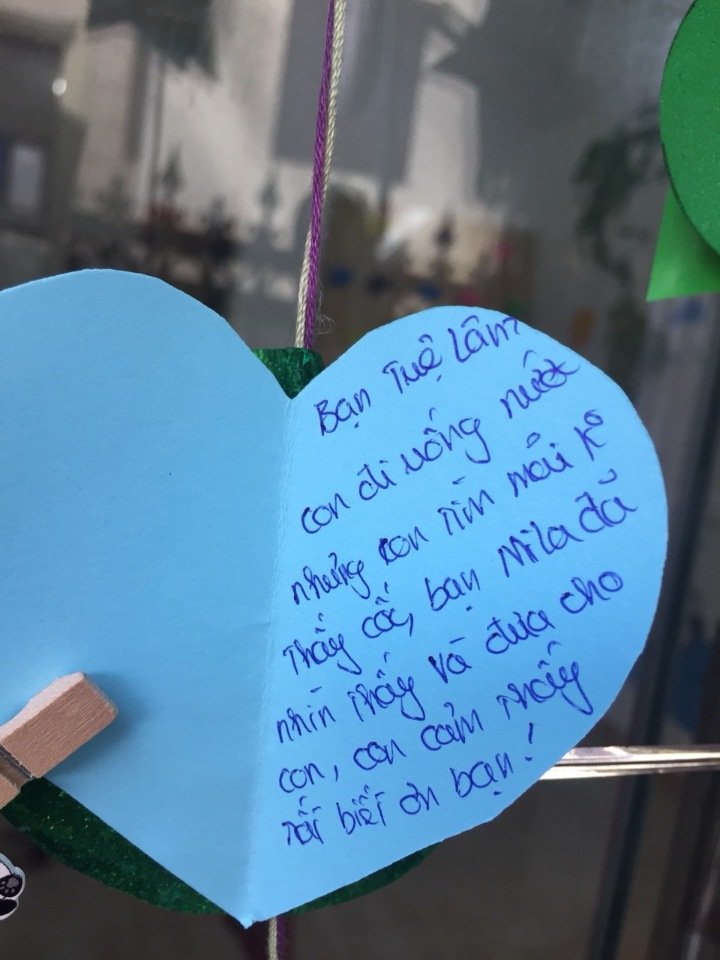 Bạn Tuệ Lâm:
con đi uống nước
nhưng con tìm mãi k°
thấy cốc, bạn Mila đã
nhìn thấy và đưa cho
con, con cảm thấy
rất biết ơn bạn!